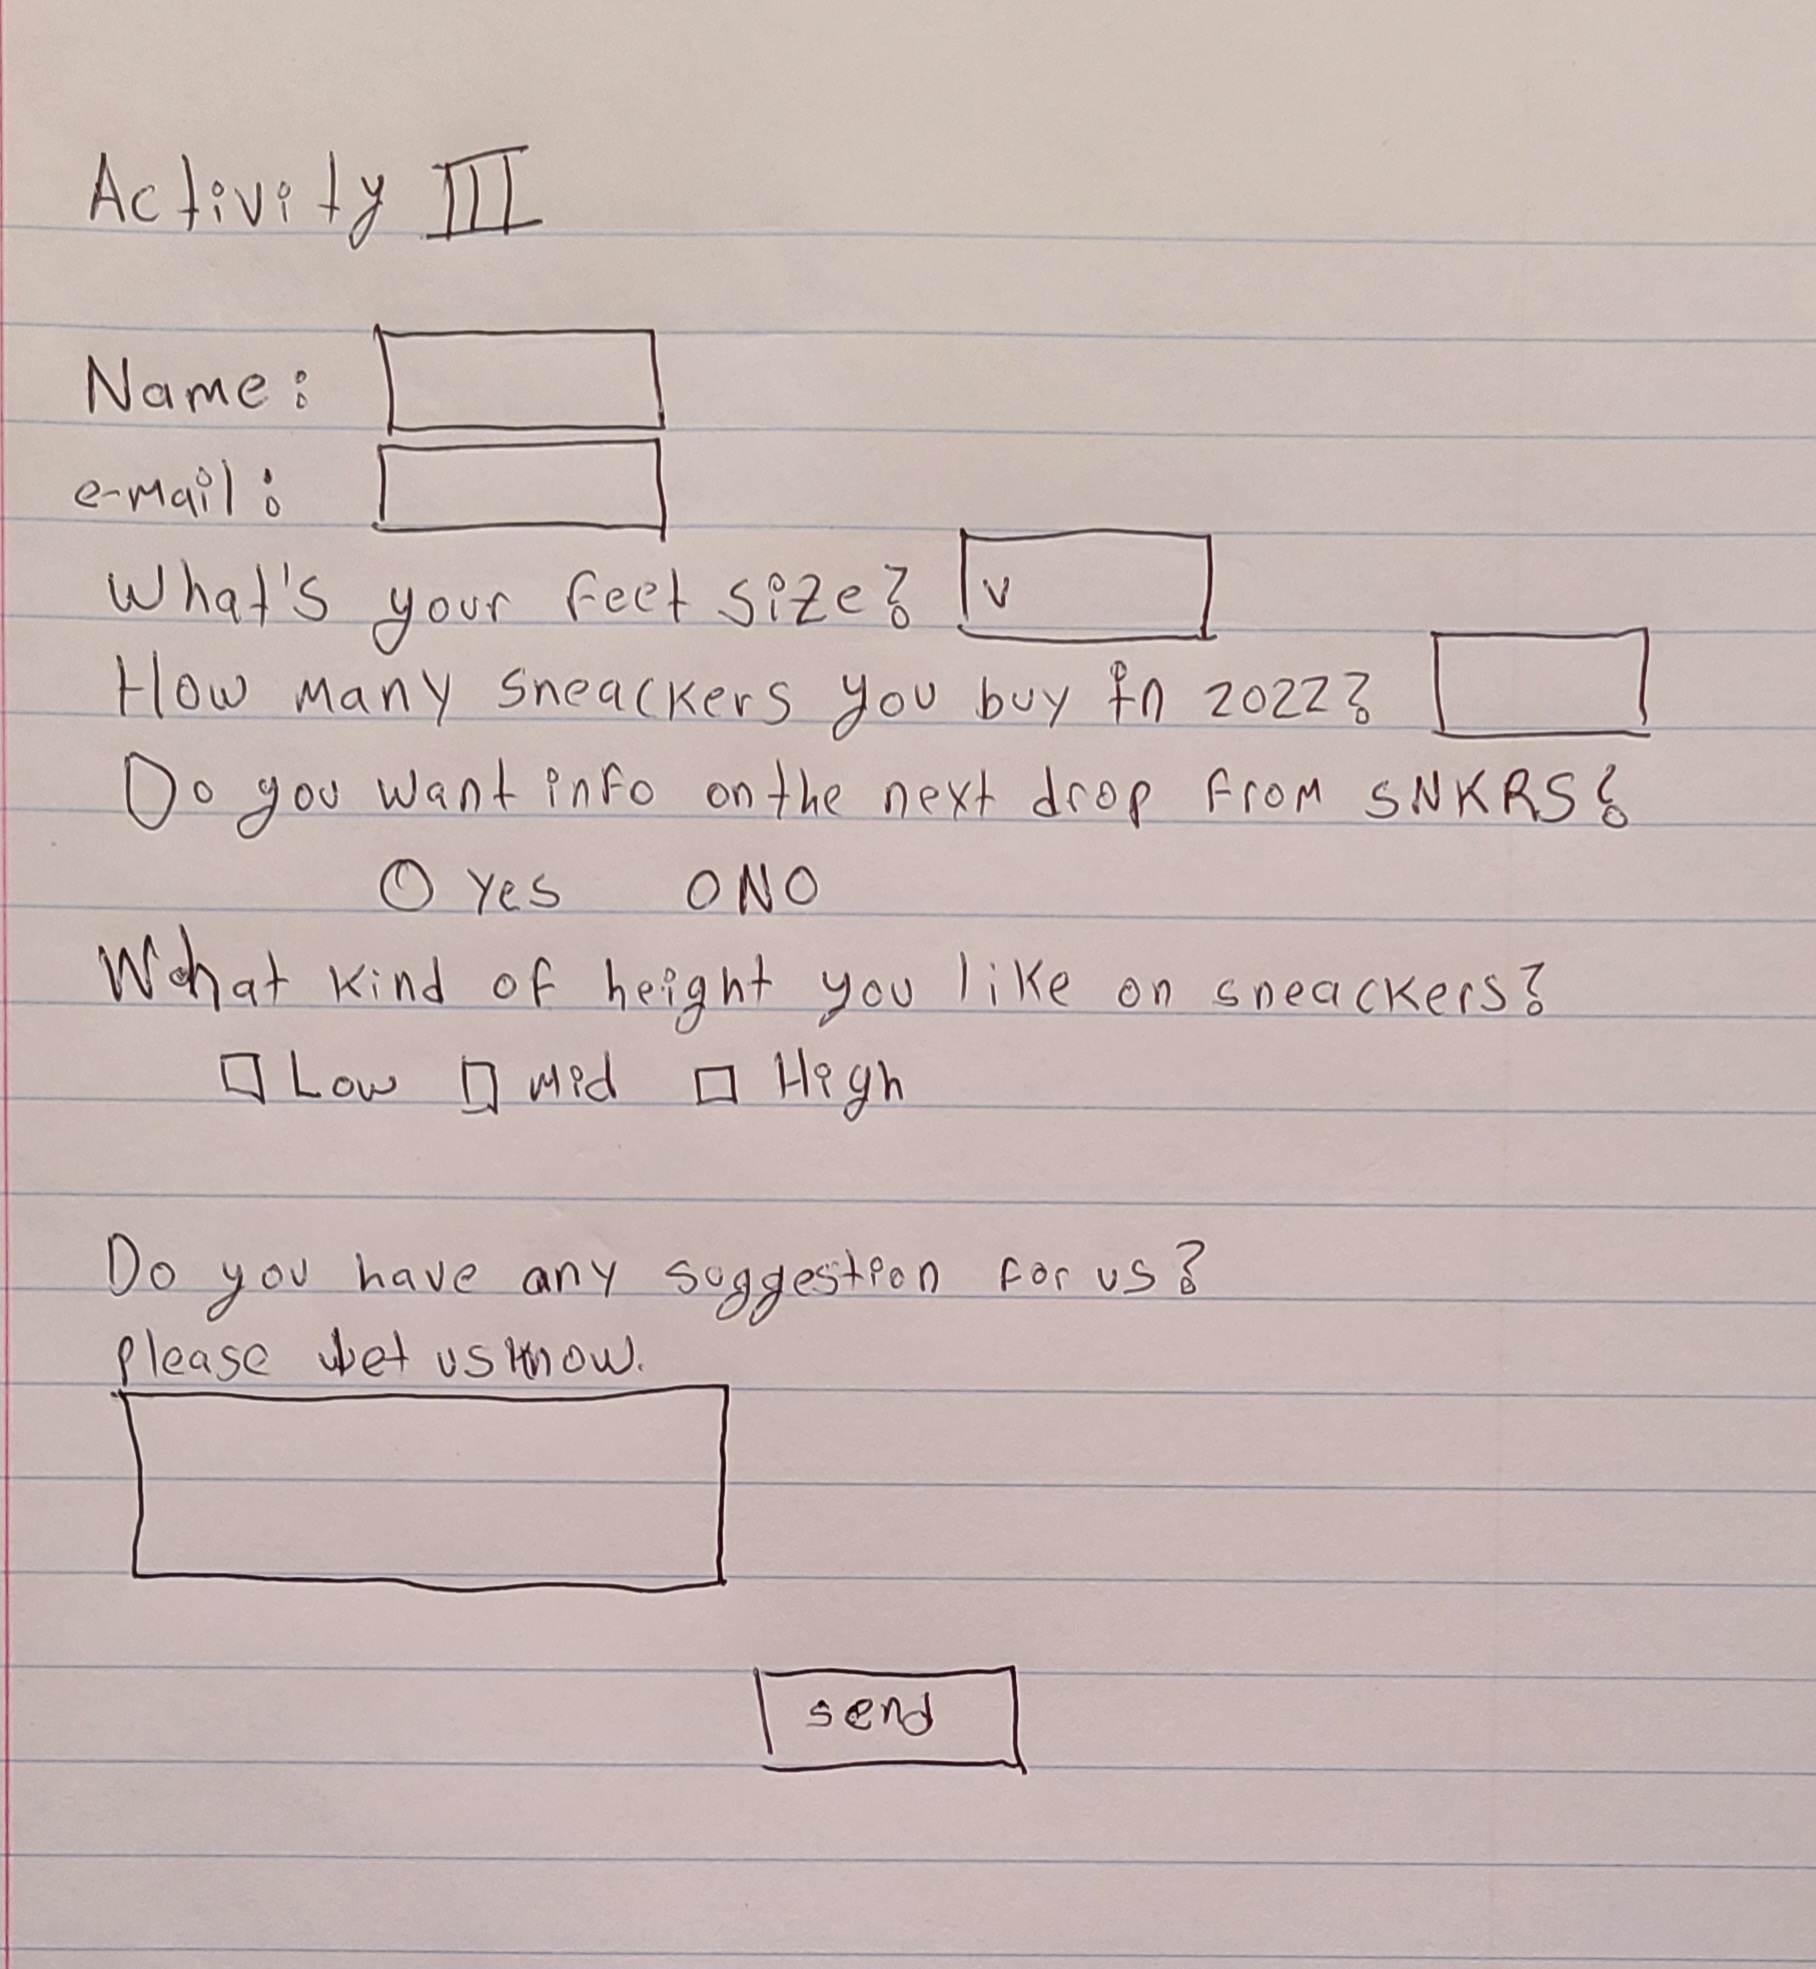 Activity III
Name:
e-mail:
What's your feet size? v
How many sneackers you buy in 2022?
Do you want info on the next drop from SNKRS?
O Yes O NO
What kind of height you like on sneackers?
□ Low □ Mid □ High
Do you have any suggestion for us?
please let us know.
send